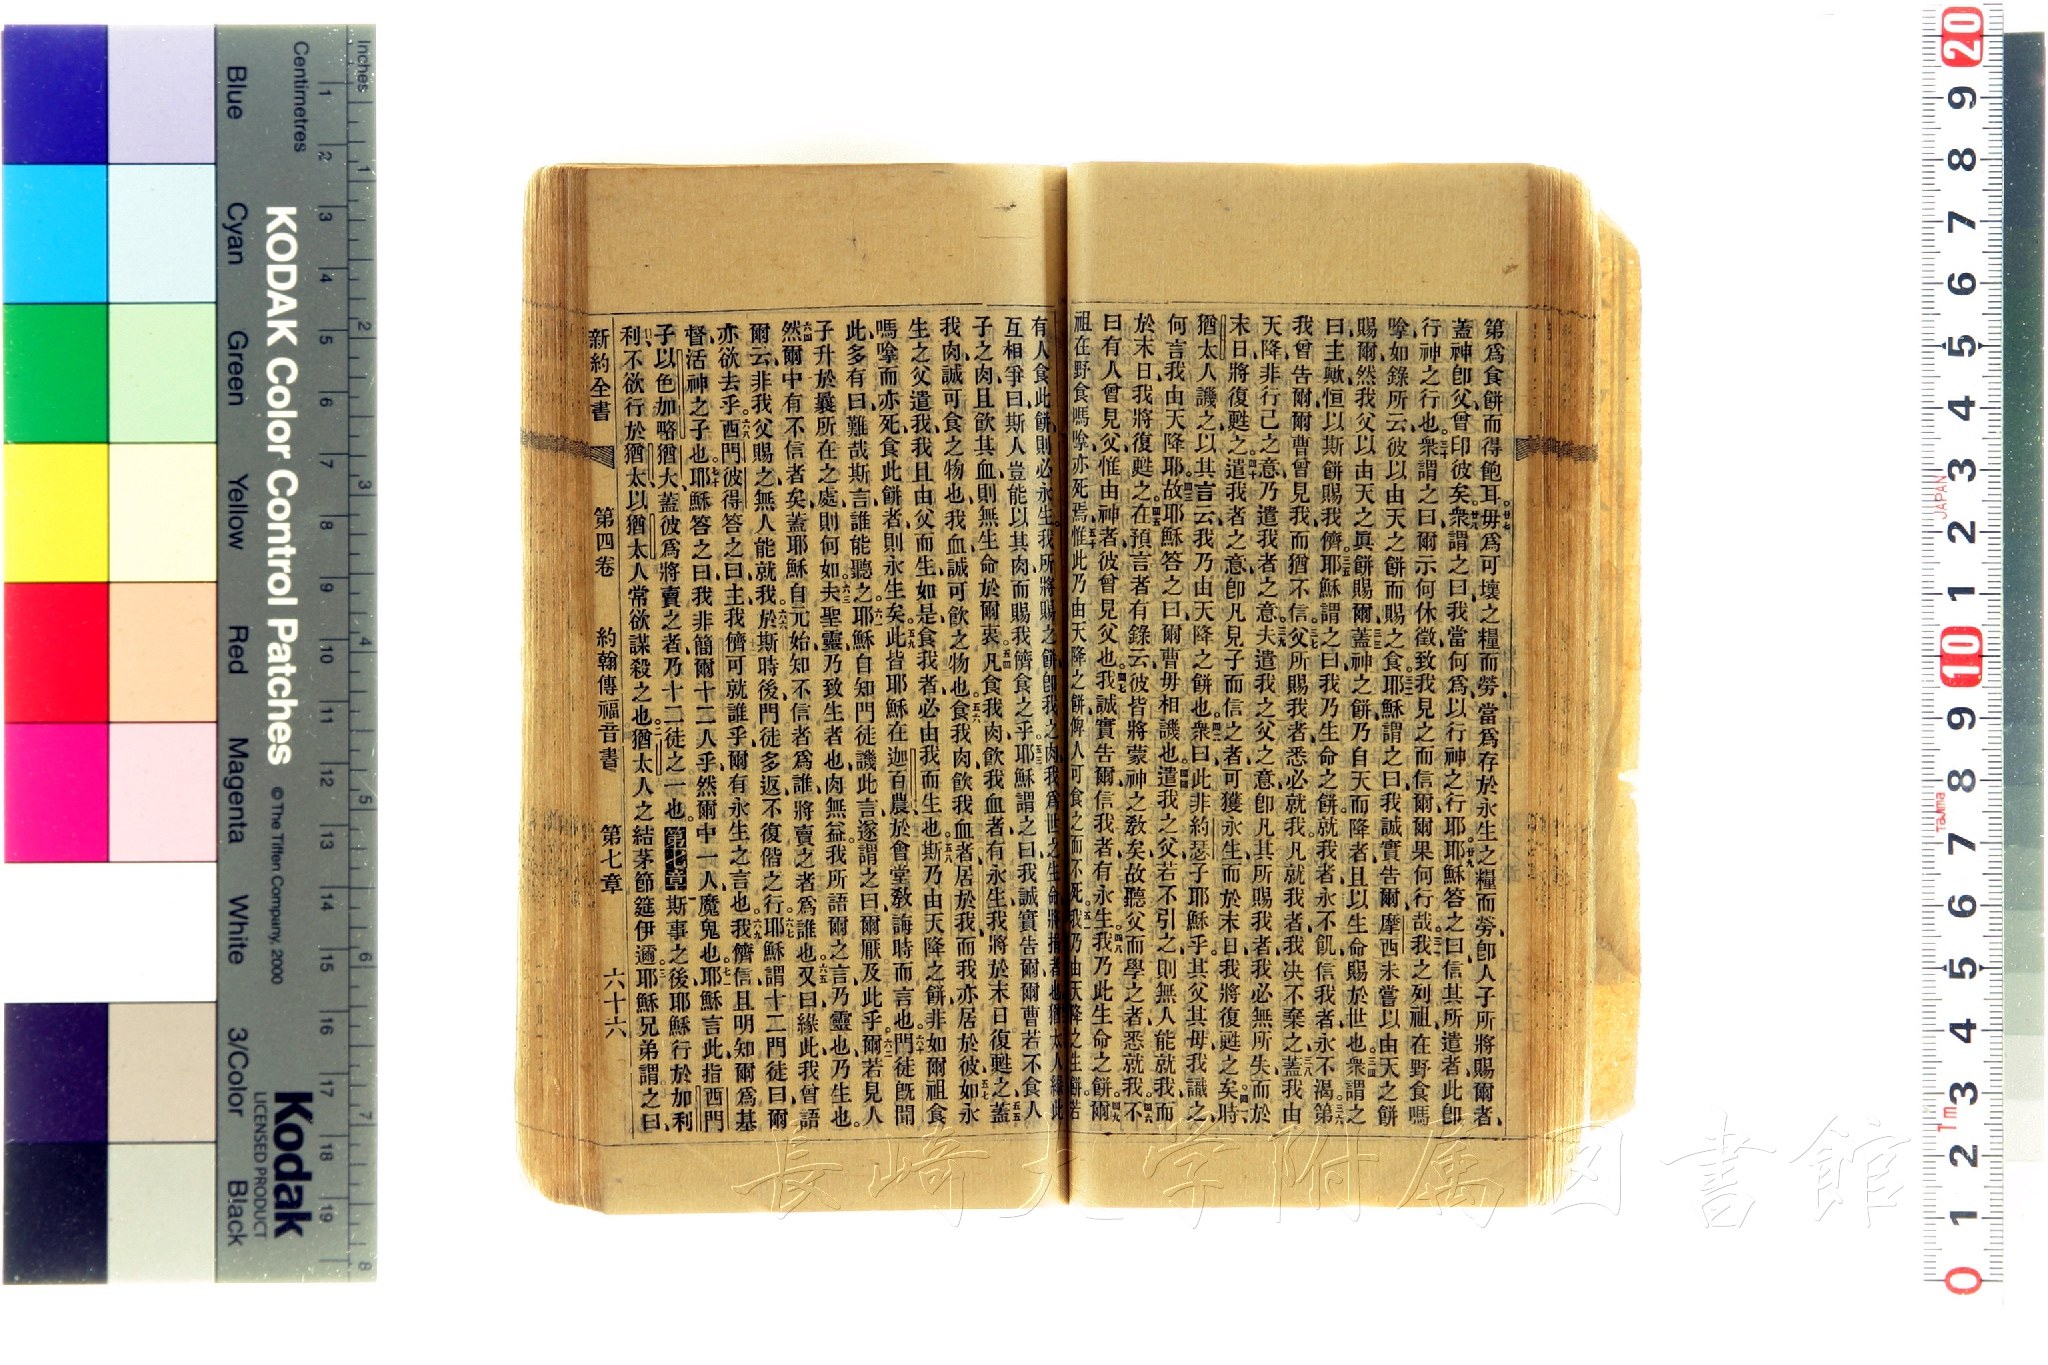 第爲食餅而得飽耳毋爲可壞之糧而勞當爲存於永生之糧而勞卽人子所將賜爾者
蓋神卽父曾印彼矣衆謂之曰我當何爲以行神之行耶耶穌答之曰信其所遣者此卽
行神之行也衆謂之曰爾示何休徵致我見之而信爾爾果何行哉我之列祖在野食嗎
嗱如錄所云彼以由天之餅而賜之食耶穌謂之曰我誠實告爾摩西未嘗以由天之餅
賜爾然我父以由天之眞餅賜爾蓋神之餅乃自天而降者且以生命賜於世也衆謂之
曰主歟恒以斯餅賜我儕耶穌謂之曰我乃生命之餅就我者永不飢信我者永不渴第
我曾告爾爾曹曾見我而猶不信父所賜我者悉必就我凡就我者我決不棄之蓋我由
天降非行己之意乃遣我者之意夫遣我之父之意卽凡其所賜我者我必無所失而於
末日將復甦之遣我者之意卽凡見子而信之者可獲永生而於末日我將復甦之矣時
猶太人譏之以其言云我乃由天降之餅也衆曰此非約瑟子耶穌乎其父其母我識之
何言我由天降耶故耶穌答之曰爾曹毋相譏也遣我之父若不引之則無人能就我而
於末日我將復甦之在預言者有錄云彼皆將蒙神之敎矣故聽父而學之者悉就我不
曰有人曾見父惟由神者彼曾見父也我誠實告爾信我者有永生我乃此生命之餅爾
祖在野食嗎嗱亦死焉惟此乃由天降之餅俾人可食之而不死我乃由天降之生餅若
有人食此餅則必永生我所將賜之餅卽我之肉我爲世之生命將捐者也猶太人緣此
互相爭曰斯人豈能以其肉而賜我儕食之乎耶穌謂之曰我誠實告爾爾曹若不食人
子之肉且飲其血則無生命於爾衷凡食我肉飲我血者有永生我將於末日復甦之蓋
我肉誠可食之物也我血誠可飲之物也食我肉飲我血者居於我而我亦居於彼如永
生之父遣我我且由父而生如是食我者必由我而生也斯乃由天降之餅非如爾祖食
嗎嗱而亦死食此餅者則永生矣此皆耶穌在迦百農於會堂敎誨時而言也門徒旣聞
此多有曰難哉斯言誰能聽之耶穌自知門徒譏此言遂謂之曰爾厭及此乎爾若見人
子升於曩所在之處則何如夫聖靈乃致生者也肉無益我所語爾之言乃靈也乃生也
然爾中有不信者矣蓋耶穌自元始知不信者爲誰將賣之者爲誰也又曰緣此我曾語
爾云非我父賜之無人能就我於斯時後門徒多返不復偕之行耶穌謂十二門徒曰爾
亦欲去乎西門彼得答之曰主我儕可就誰乎爾有永生之言也我儕信且明知爾爲基
督活神之子也耶穌答之曰我非簡爾十二人乎然爾中一人魔鬼也耶穌言此指西門
子以色加略猶大蓋彼爲將賣之者乃十二徒之一也第七章斯事之後耶穌行於加利
利不欲行於猶太以猶太人常欲謀殺之也猶太人之結茅節筵伊邇耶穌兄弟謂之曰
新約全書 第四卷 約翰傳福音書 第七章 六十六
Inches
Centimetres
KODAK Color Control Patches
© The Tiffen Company, 2000
Kodak
LICENSED PRODUCT
Blue Cyan Green Yellow Red Magenta White 3/Color Black
JAPAN
Tajima
長崎大学附属図書館